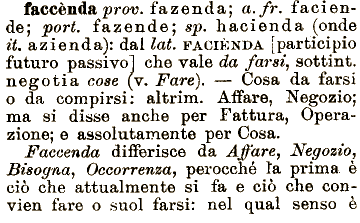 faccènda prov. fazenda; a. fr. facien-
de; port. fazende; sp. hacienda (onde
it. azienda): dal lat. FACIÈNDA [participio
futuro passivo] che vale da farsi, sottint.
negotia cose (v. Fare). — Cosa da farsi
o da compirsi: altrim. Affare, Negozio;
ma si disse anche per Fattura, Opera-
zione; e assolutamente per Cosa.
Faccenda differisce da Affare, Negozio,
Bisogna, Occorrenza, perocchè la prima è
ciò che attualmente si fa e ciò che con-
vien fare o suol farsi: nel qual senso è